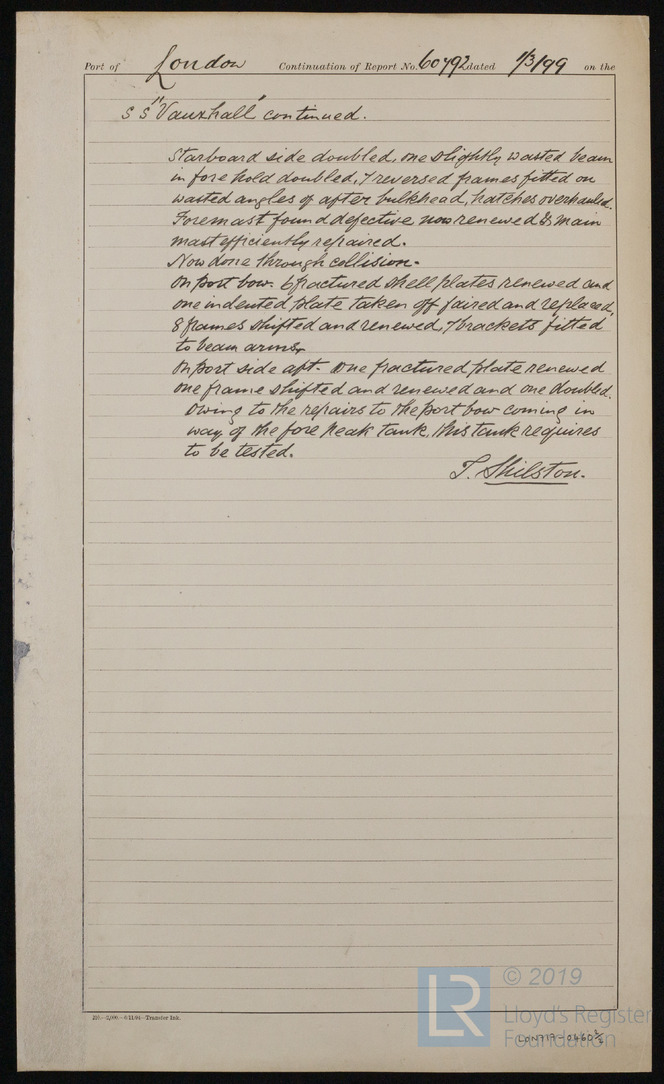 Port of London Continuation of Report No. 60792 dated 1/3/99 on the
S S "Vauxhall" continued.
Starboard side doubled, one slightly wasted beam
in fore hold doubled, 7 reversed frames fitted on
wasted angles of after bulkhead, hatches overhauled.
Foremast found defective now renewed & main
mast efficiently repaired.
Now done through collision.
On port bow. 6 fractured shell plates renewed and
one indented plate taken off faired and replaced,
8 frames shifted and renewed, 7 brackets fitted
to beam arms.
On port side aft. One fractured plate renewed
one frame shifted and renewed and one doubled.
Owing to the repairs to the port bow coming in
way of the fore peak tank, this tank requires
to be tested.
T. Shilston.
210.—2,000.—6/11/94—Transfer Ink.
LR
© 2019
Lloyd's Register
Foundation
LON717-0460